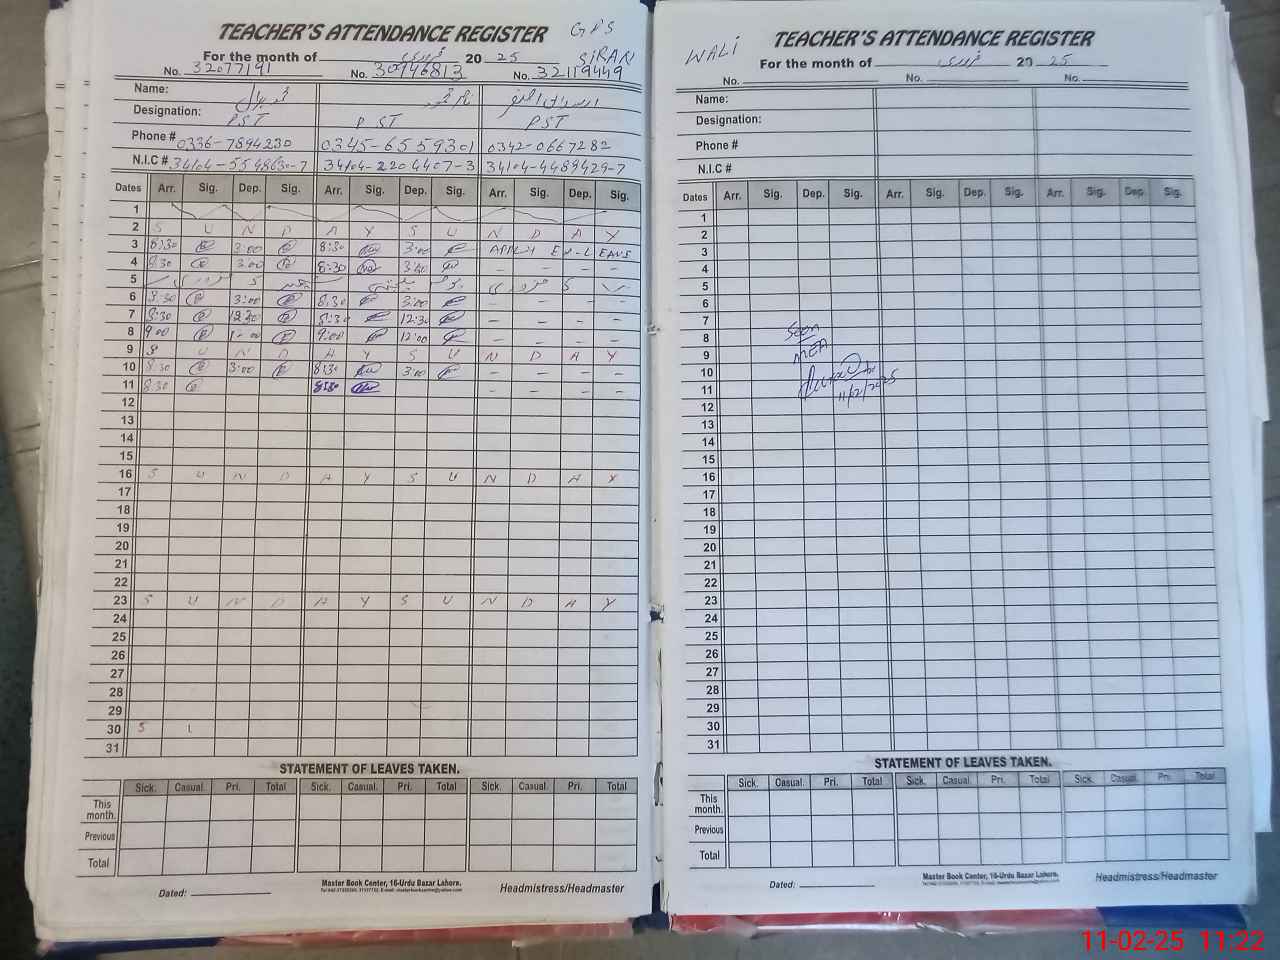 TEACHER'S ATTENDANCE REGISTER
GPS
For the month of فروری 2025
SIRAN
No. 32077191 No. No. 32119449
Name:
Designation: PST PST PST
Phone # 0336-7894230 0345-6559301 0342-0667282
N.I.C # 34104-5548630-7 34104-2204407-3 34104-4489429-7
Dates Arr. Sig. Dep. Sig. Arr. Sig. Dep. Sig. Arr. Sig. Dep. Sig.
1
2 S U N D A Y S U N D A Y
3 8:30 3:00 8:30 3:00
4 8:30 3:00 8:30 3:00 - - - -
5
6 8:30 3:00 8:30 3:00 - - - -
7 8:30 12:30 8:30 12:30 - - - -
8 9:00 9:00 12:00 - - - -
9 S U N D A Y S U N D A Y
10 8:30 3:00 8:30 3:00 - - - -
11 8:30 8:30 - - - -
12
13
14
15
16 S U N D A Y S U N D A Y
17
18
19
20
21
22
23 S U N D A Y S U N D A Y
24
25
26
27
28
29
30 S U
31
STATEMENT OF LEAVES TAKEN.
Sick. Casual. Pri. Total Sick. Casual. Pri. Total Sick. Casual. Pri. Total
This month.
Previous
Total
Dated:
Master Book Center, 16-Urdu Bazar Lahore.
Headmistress/Headmaster
WALI
TEACHER'S ATTENDANCE REGISTER
For the month of فروری 2025
No. No. No.
Name:
Designation:
Phone #
N.I.C #
Dates Arr. Sig. Dep. Sig. Arr. Sig. Dep. Sig. Arr. Sig. Dep. Sig.
1
2
3
4
5
6
7
8 Seen
9 MEA
10
11 11/2/2025
12
13
14
15
16
17
18
19
20
21
22
23
24
25
26
27
28
29
30
31
STATEMENT OF LEAVES TAKEN.
Sick. Casual. Pri. Total Sick. Casual. Pri. Total Sick. Casual. Pri. Total
This month.
Previous
Total
Dated:
Master Book Center, 16-Urdu Bazar Lahore.
Headmistress/Headmaster
11-02-25 11:22